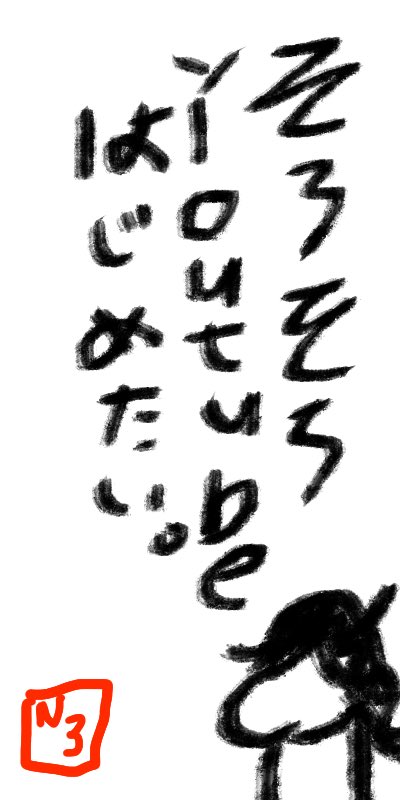 そろそろ
Youtube
はじめたい。
N3